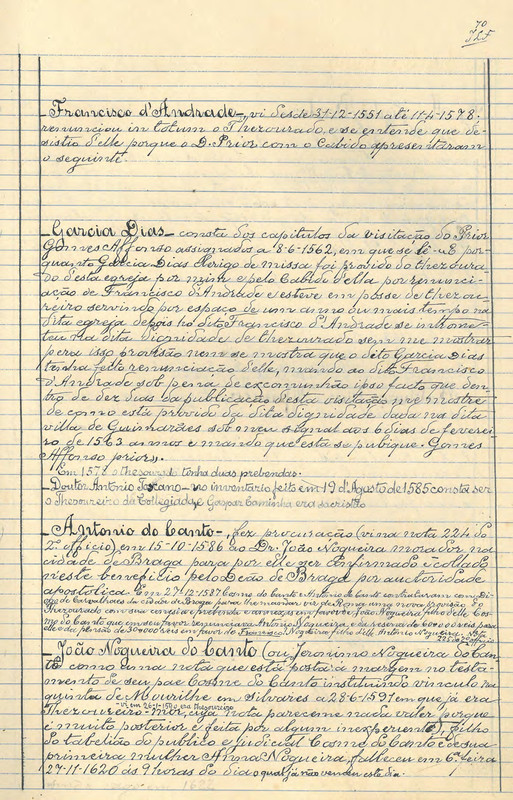 70
Francisco d'Andrade_ vi desde 31-12-1551 até 11-4-1578;
renunciou in totum o Thezourado, e se entende que de-
sistio d'elle porque o D. Prior com o Cabido apresentaram
o seguinte.
Garcia Dias_ consta dos capitulos da visitação do Prior
Gomes Affonso assignados a 8-6-1562, em que se lê - «E por
quanto Garcia Dias clerigo de missa foi provido do thezoura-
do d'esta egreja por mim e pelo Cabido d'ella por renunci-
ação de Francisco d'Andrade e esteve em posse de thezou-
reiro servindo por espaço de um anno ou mais tempo na
dita egreja depois ho dito Francisco d'Andrade se introme-
teu na dita dignidade de thezourado sem me mostrar
pera isso provisão nem se mostra que o dito Garcia Dias
tenha feito renunciação d'elle, mando ao dito Francisco
d'Andrade sob pena de excomunhão ipso facto que den-
tro de dez dias da publicação d'esta visitação me mostre
de como está provido da dita dignidade dada na dita
villa de Guimarães sob meu signal aos 6 dias de feverei-
ro de 1563 annos e mando que esta se pubique. Gomes
Affonso prior».
Em 1572 o thesourado tenha duas prebendas.
Doutor Antonio Toscano - no inventario feito em 19 d'Agosto de 1585 consta ser
o Thesoureiro da Collegiada, e Gaspar Caminha era sacristão
Antonio do Canto -, fez procuração (vi na nota 224 do
2.º officio) em 15-10-1586 ao Dr. João Nogueira morador na
cidade de Braga para por elle ser confirmado e collado
n'este beneficio pelo Deão de Braga por autoridade
apostolica. Em 27-12-1587 Cosmo do Canto e Antonio do Canto contrataram com Di-
ogo de Carvalhaes da cidade de Braga para lhe mandar vir de Roma uma nova provisão do
Thezourado com sua conesia e prebenda e annexas em favor de João Nogueira filho d'elle Cos-
mo do Canto que em seu favor renunciava Antonio Nogueira, e da reserva de 60$000 reis para
elle e de pensão de 30$000 reis em favor do Francisco Nogueira filho d'elle Antonio Nogueira. Nota
João Nogueira do Canto (ou Jeronimo Nogueira do Can-
to como uma nota que está posta á margem no testa-
mento de seu pae Cosme do Canto instituindo vinculo na
quinta de Mourilhe em Silvares a 28-6-1591 em que já era
Thezoureiro-mór, cuja nota parece-me nada valer porque
- vi em 26-1-1590 era thesoureiro
é muito posterior e feita por algum inexperiente), filho
do tabelião do publico e judicial Cosme do Canto e de sua
primeira mulher Anna Nogueira, falleceu em 6.ª feira
27-11-1620 ás 9 horas do dia o qual já não venceu este dia.